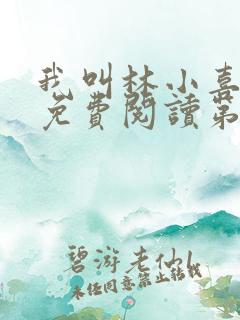 我叫林小喜
免費閱讀第
碧游老仙
未经同意禁止转载